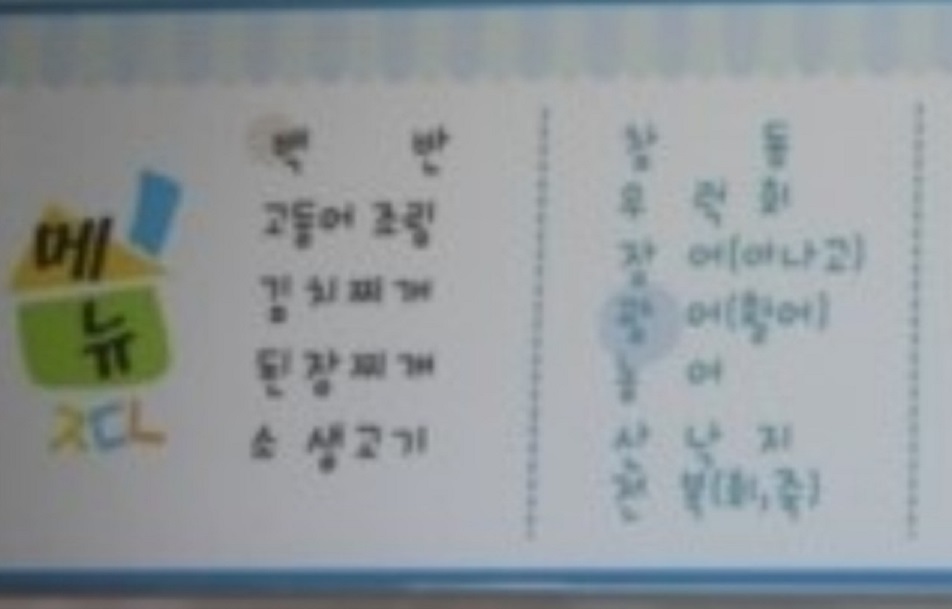 메
뉴
ㄱㄷㄴ
백 반
고등어 조림
김치찌개
된장찌개
소 생고기
참 돔
우 럭 회
장 어(아나고)
광 어(활어)
농 어
산 낙 지
전 복(회,죽)